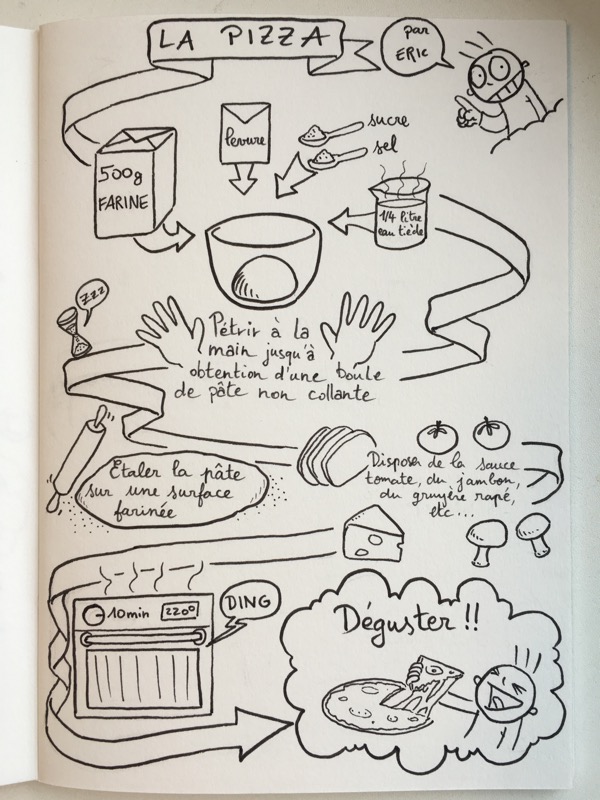 LA PIZZA
par
ERIC
500g
FARINE
levure
sucre
sel
1/4 litre
eau tiède
ZZZ
Pétrir à la
main jusqu'à
obtention d'une boule
de pâte non collante
Étaler la pâte
sur une surface
farinée
Disposer de la sauce
tomate, du jambon,
du gruyère rapé,
etc...
10min 220°
DING
Déguster !!